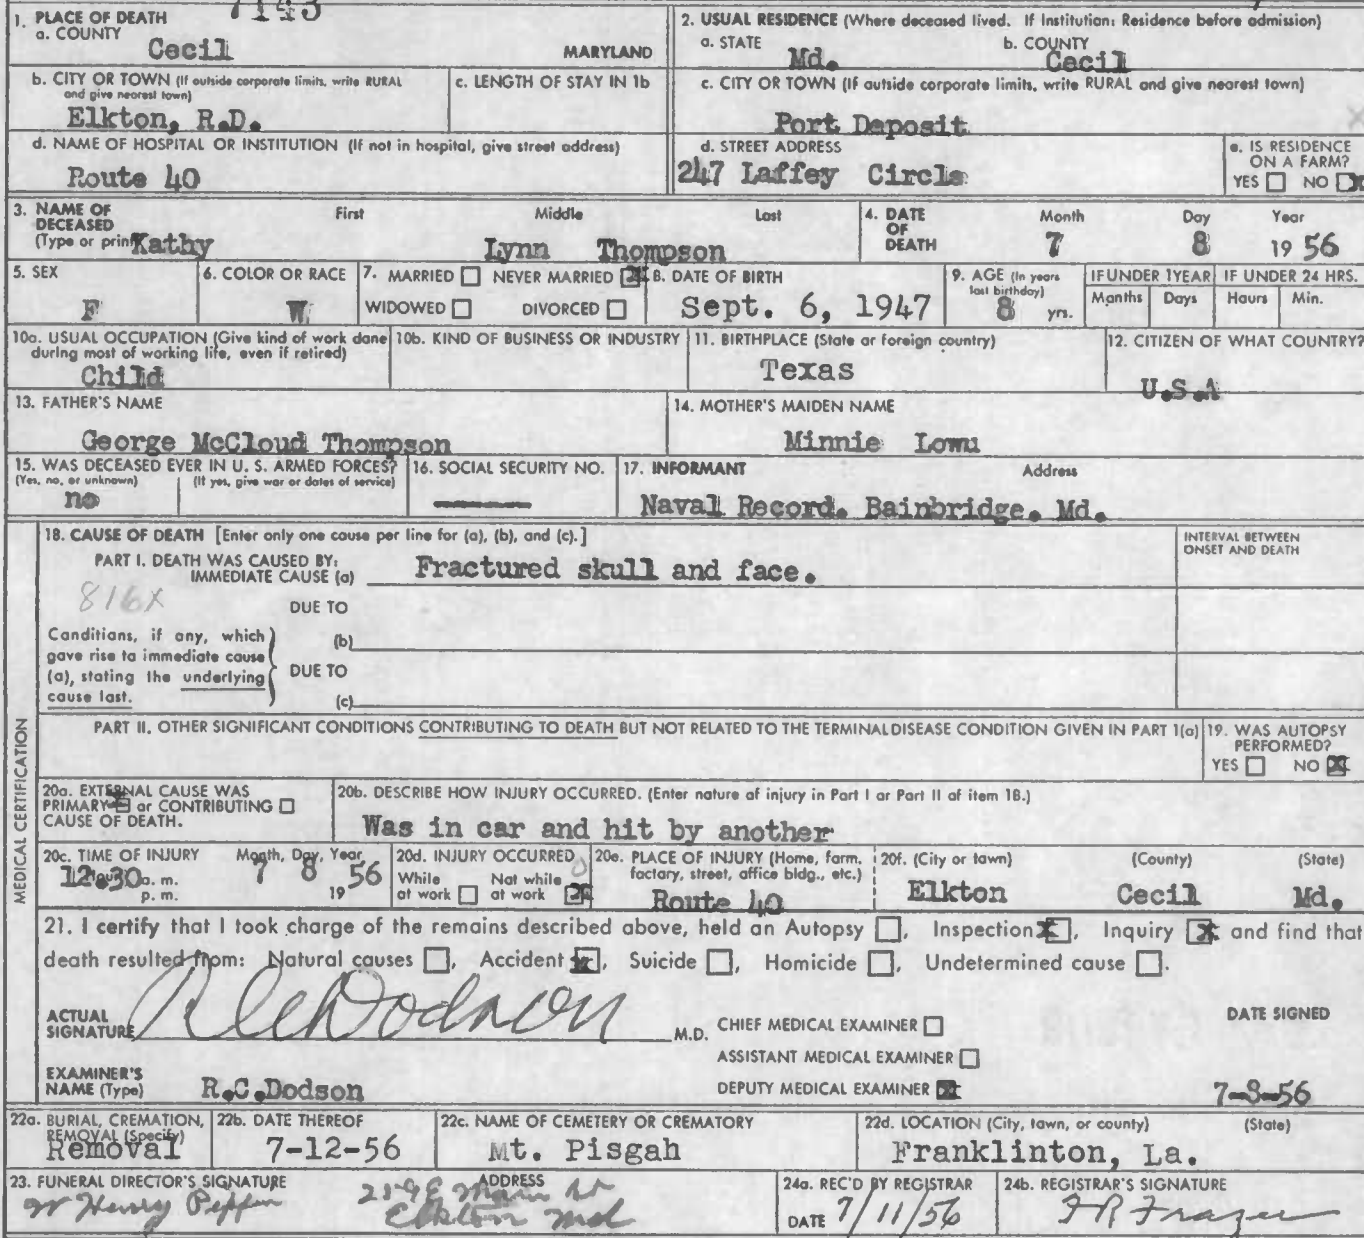 7143
1. PLACE OF DEATH
a. COUNTY
Cecil MARYLAND
2. USUAL RESIDENCE (Where deceased lived. If Institution: Residence before admission)
a. STATE Md. b. COUNTY Cecil
b. CITY OR TOWN (If outside corporate limits, write RURAL and give nearest town)
Elkton, R.D.
c. LENGTH OF STAY IN 1b
c. CITY OR TOWN (If outside corporate limits, write RURAL and give nearest town)
Port Deposit
d. NAME OF HOSPITAL OR INSTITUTION (If not in hospital, give street address)
Route 40
d. STREET ADDRESS
247 Laffey Circle
e. IS RESIDENCE ON A FARM?
YES NO X
3. NAME OF DECEASED (Type or print) First Middle Last
Kathy Lynn Thompson
4. DATE OF DEATH Month Day Year
7 8 1956
5. SEX
F
6. COLOR OR RACE
W
7. MARRIED NEVER MARRIED X
WIDOWED DIVORCED
8. DATE OF BIRTH
Sept. 6, 1947
9. AGE (In years last birthday)
8 yrs.
IF UNDER 1 YEAR IF UNDER 24 HRS.
Months Days Hours Min.
10a. USUAL OCCUPATION (Give kind of work done during most of working life, even if retired)
Child
10b. KIND OF BUSINESS OR INDUSTRY
11. BIRTHPLACE (State or foreign country)
Texas
12. CITIZEN OF WHAT COUNTRY?
U.S.A
13. FATHER'S NAME
George McCloud Thompson
14. MOTHER'S MAIDEN NAME
Minnie Lowu
15. WAS DECEASED EVER IN U. S. ARMED FORCES?
(Yes, no, or unknown) (If yes, give war or dates of service)
no
16. SOCIAL SECURITY NO.
17. INFORMANT Address
Naval Record. Bainbridge. Md.
MEDICAL CERTIFICATION
18. CAUSE OF DEATH [Enter only one cause per line for (a), (b), and (c).]
INTERVAL BETWEEN ONSET AND DEATH
PART I. DEATH WAS CAUSED BY:
IMMEDIATE CAUSE (a) Fractured skull and face.
816X
DUE TO
Conditions, if any, which gave rise to immediate cause (a), stating the underlying cause last.
(b)
DUE TO
(c)
PART II. OTHER SIGNIFICANT CONDITIONS CONTRIBUTING TO DEATH BUT NOT RELATED TO THE TERMINAL DISEASE CONDITION GIVEN IN PART 1(a)
19. WAS AUTOPSY PERFORMED?
YES NO X
20a. EXTERNAL CAUSE WAS PRIMARY or CONTRIBUTING CAUSE OF DEATH.
20b. DESCRIBE HOW INJURY OCCURRED. (Enter nature of injury in Part I or Part II of item 18.)
Was in car and hit by another
20c. TIME OF INJURY Month, Day, Year
12.30 a. m. p. m. 7 8 1956
20d. INJURY OCCURRED
While at work Not while at work X
20e. PLACE OF INJURY (Home, farm, factory, street, office bldg., etc.)
Route 40
20f. (City or town) (County) (State)
Elkton Cecil Md.
21. I certify that I took charge of the remains described above, held an Autopsy , Inspection X , Inquiry X and find that
death resulted from: Natural causes , Accident X , Suicide , Homicide , Undetermined cause .
ACTUAL SIGNATURE R C Dodson M.D.
CHIEF MEDICAL EXAMINER
ASSISTANT MEDICAL EXAMINER
DEPUTY MEDICAL EXAMINER X
DATE SIGNED
7-8-56
EXAMINER'S NAME (Type) R.C.Dodson
22a. BURIAL, CREMATION, REMOVAL (Specify)
Removal
22b. DATE THEREOF
7-12-56
22c. NAME OF CEMETERY OR CREMATORY
Mt. Pisgah
22d. LOCATION (City, town, or county) (State)
Franklinton, La.
23. FUNERAL DIRECTOR'S SIGNATURE ADDRESS
W Henry Peppin 259 E Main St
Elkton Md
24a. REC'D BY REGISTRAR
DATE 7/11/56
24b. REGISTRAR'S SIGNATURE
F R Frazer